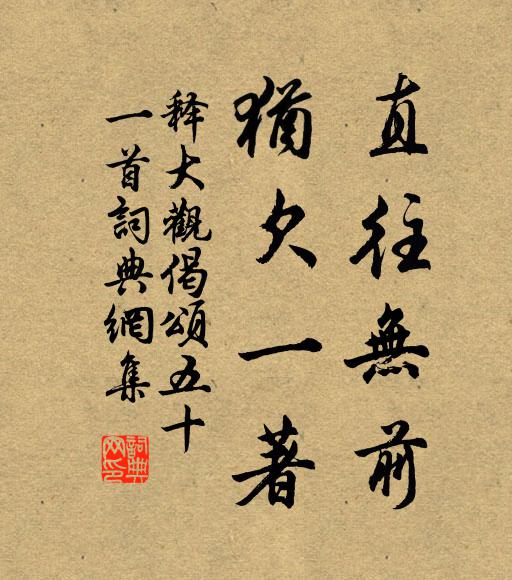 直往無前
猶欠一著
释大觀偈頌五十
一首詞典網集
詞典
网印